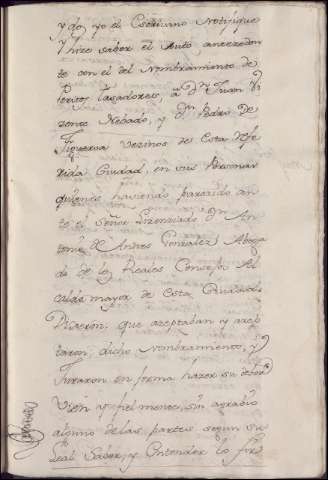 y do, yo el Escrivano Notifique
Y hize saber el Auto anteceden
te con el del Nombramiento de
Peritos tasadores, a Dn Juan Vi
zente Nebado, y Dn Pedro de
Figueroa Vezinos de esta refe
rida Ciudad, en sus Personas
quienes haviendo parezido an
te el Señor Lizenziado Dn An
tonio de Andres Gonzalez Aboga
do de los Reales Consejos Al
calde mayor de esta Ciudad
Dixeron, que aceptaban y azep
taron, dicho Nombramiento, y
Juraron en forma hazer su
Vien y fielmente, sin agrabio
alguno de las partes segun su
Leal Saber, y Entender lo